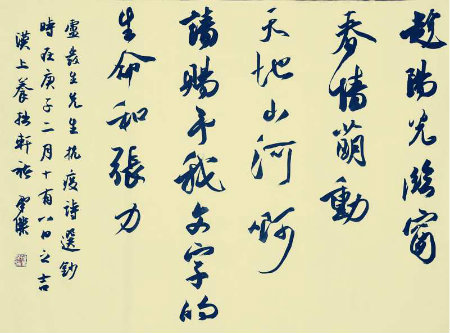 趁陽光臨窗
春情萌動
天地山河啊
請賜予我文字的
生命和張力
先生抗疫詩選鈔
時在庚子二月十有八日之吉
漢上養拙軒